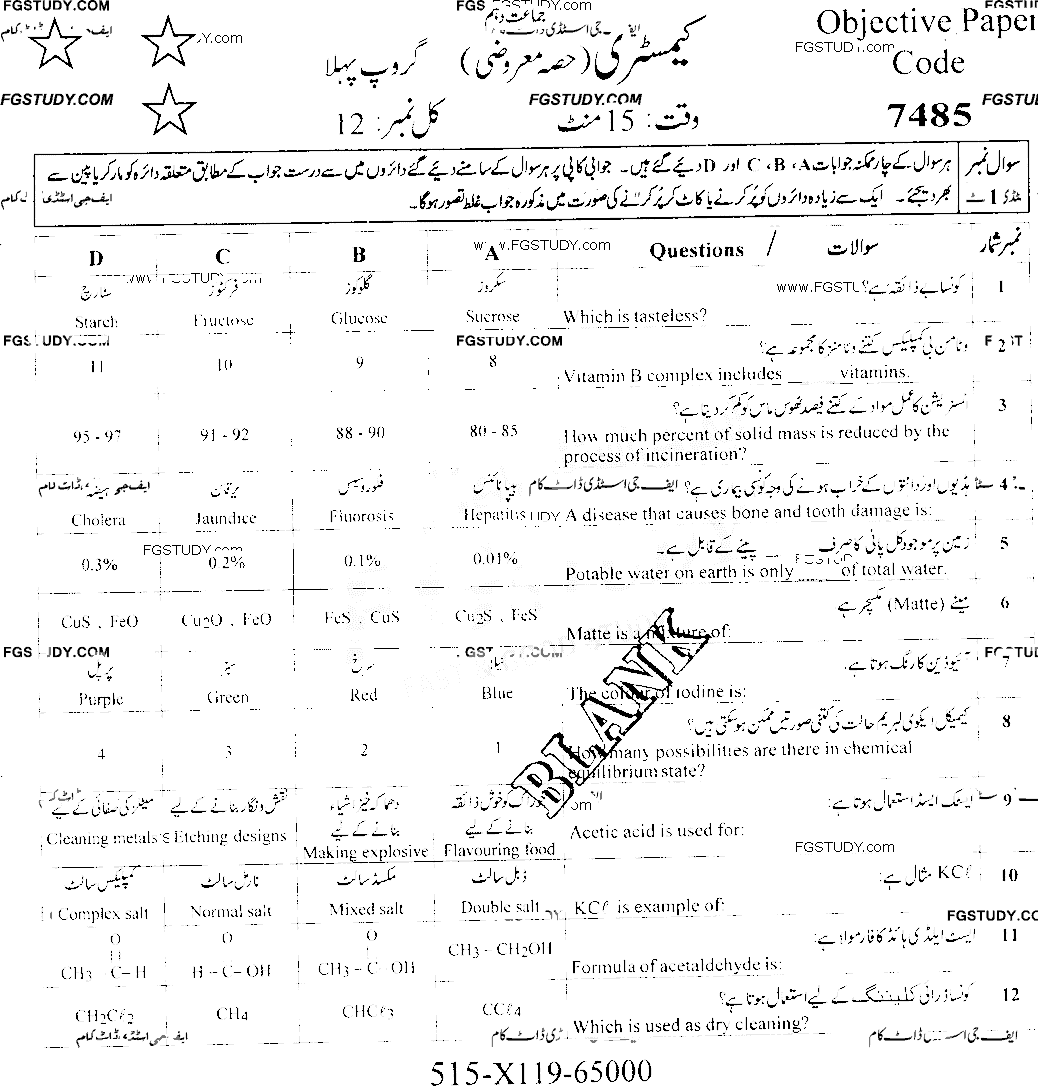 FGSTUDY.COM
جماعت دہم
Objective Paper
Code
7485
کیمسٹری (حصہ معروضی) گروپ پہلا
وقت: 15 منٹ
کل نمبر: 12
سوال نمبر 1
ہر سوال کے چار ممکنہ جوابات A، B، C اور D دیئے گئے ہیں۔ جوابی کاپی پر ہر سوال کے سامنے دیئے گئے دائروں میں سے درست جواب کے مطابق متعلقہ دائرہ کو مارکر یا پین سے
بھر دیجئے۔ ایک سے زیادہ دائروں کو پُر کرنے یا کاٹ کر پُر کرنے کی صورت میں مذکورہ جواب غلط تصور ہوگا۔
D C B A Questions / سوالات نمبر شمار
سٹارچ فرکٹوز گلوکوز سکروز کونسا بے ذائقہ ہے؟ 1
Starch Fructose Glucose Sucrose Which is tasteless?
وٹامن بی کمپلیکس کتنے وٹامنز کا مجموعہ ہے؟ 2
11 10 9 8 Vitamin B complex includes ____ vitamins.
انسنریشن کا عمل مواد کے کتنے فیصد ٹھوس ماس کو کم کر دیتا ہے؟ 3
95 - 97 91 - 92 88 - 90 80 - 85 How much percent of solid mass is reduced by the
process of incineration?
ہیضہ یرقان فلوروسس ہیپاٹائٹس ہڈیوں اور دانتوں کے خراب ہونے کی وجہ کونسی بیماری ہے؟ 4
Cholera Jaundice Fluorosis Hepatitis A disease that causes bone and tooth damage is:
زمین پر موجود کل پانی کا صرف ____ پینے کے قابل ہے۔ 5
0.3% 0.2% 0.1% 0.01% Potable water on earth is only ____ of total water.
میٹے (Matte) مکسچر ہے 6
CuS , FeO Cu2O , FeO FeS , CuS Cu2S , FeS Matte is a mixture of:
پرپل سبز سرخ نیلا آئیوڈین کا رنگ ہوتا ہے۔ 7
Purple Green Red Blue The colour of iodine is:
کیمیکل ایکوی لبریم حالت کی کتنی صورتیں ممکن ہو سکتی ہیں؟ 8
4 3 2 1 How many possibilities are there in chemical
equilibrium state?
BLANK
میٹلز کی صفائی کے لیے نقش و نگار بنانے کے لیے دھماکہ خیز اشیاء بنانے کے لیے خوراک کو خوش ذائقہ بنانے کے لیے ایسیٹک ایسڈ استعمال ہوتا ہے: 9
Cleaning metals Etching designs Making explosive Flavouring food Acetic acid is used for:
کمپلیکس سالٹ نارمل سالٹ مکسڈ سالٹ ڈبل سالٹ KCℓ مثال ہے: 10
Complex salt Normal salt Mixed salt Double salt KCℓ is example of:
ایسٹ ایلڈی ہائڈ کا فارمولا ہے: 11
O O O
CH3 - C - H H - C - OH CH3 - C - OH CH3 - CH2OH Formula of acetaldehyde is:
کونسا ڈرائی کلیننگ کے لیے استعمال ہوتا ہے؟ 12
CH2Cℓ2 CH4 CHCℓ3 CCℓ4 Which is used as dry cleaning?
ایف جی اسٹڈی ڈاٹ کام
515-X119-65000